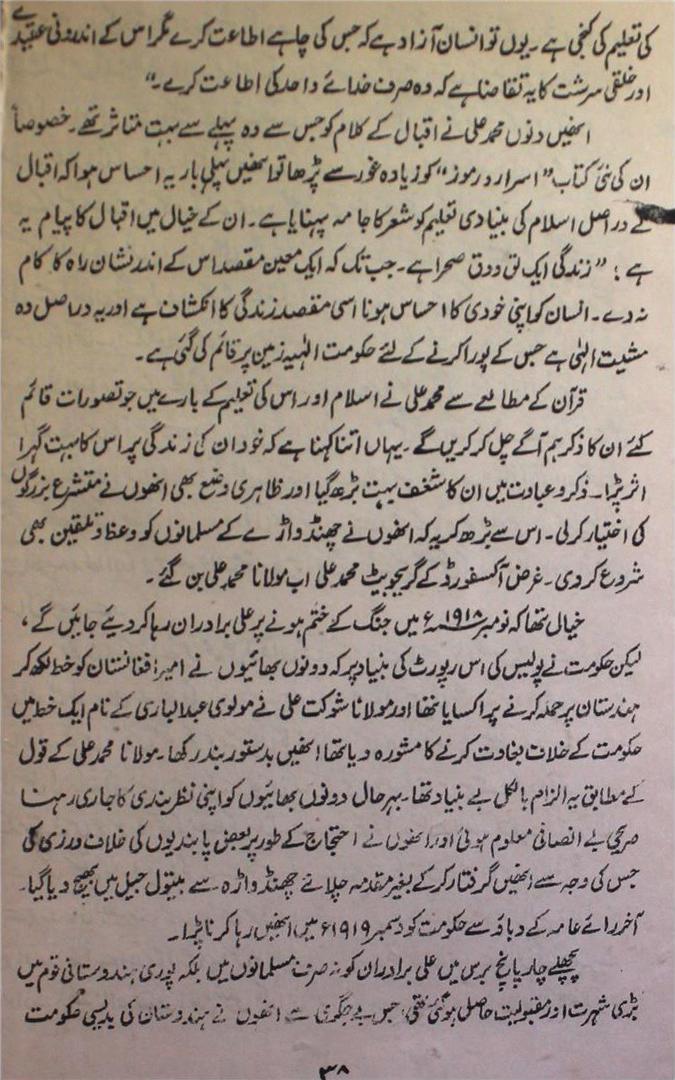 کی تعلیم کی کنجی ہے۔ یوں تو انسان آزاد ہے کہ جس کی چاہے اطاعت کرے مگر اس کے اندرونی عقیدے
اور خلقی سرشت کا یہ تقاضا ہے کہ وہ صرف خدائے واحد کی اطاعت کرے۔"
انھیں دنوں محمد علی نے اقبال کے کلام کو جس سے وہ پہلے سے بہت متاثر تھے۔ خصوصاً
ان کی نئی کتاب "اسرار و رموز" کو زیادہ غور سے پڑھا تو انھیں پہلی بار یہ احساس ہوا کہ اقبال
نے دراصل اسلام کی بنیادی تعلیم کو شعر کا جامہ پہنایا ہے۔ ان کے خیال میں اقبال کا پیام یہ
ہے : "زندگی ایک لق ودق صحرا ہے۔ جب تک کہ ایک معین مقصد اس کے اندر نشان راہ کا کام
نہ دے۔ انسان کو اپنی خودی کا احساس ہونا اسی مقصد زندگی کا انکشاف ہے اور یہ دراصل وہ
مشیت الٰہی ہے جس کے پورا کرنے کے لئے حکومت الٰہیہ زمین پر قائم کی گئی ہے۔
قرآن کے مطالعے سے محمد علی نے اسلام اور اس کی تعلیم کے بارے میں جو تصورات قائم
کئے ان کا ذکر ہم آگے چل کر کریں گے۔ یہاں اتنا کہنا ہے کہ خود ان کی زندگی پر اس کا بہت گہرا
اثر پڑا۔ ذکر و عبادت میں ان کا شغف بہت بڑھ گیا اور ظاہری وضع بھی انھوں نے متشرع بزرگوں
کی اختیار کرلی۔ اس سے بڑھ کر یہ کہ انھوں نے چھنڈواڑے کے مسلمانوں کو وعظ و تلقین بھی
شروع کردی۔ غرض آکسفورڈ کے گریجویٹ محمد علی اب مولانا محمد علی بن گئے۔
خیال تھا کہ نومبر ۱۹۱۸ء میں جنگ کے ختم ہونے پر علی برادران رہا کر دیئے جائیں گے،
لیکن حکومت نے پولیس کی اس رپورٹ کی بنیاد پر کہ دونوں بھائیوں نے امیر افغانستان کو خط لکھ کر
ہندستان پر حملہ کرنے پر اکسایا تھا اور مولانا شوکت علی نے مولوی عبدالباری کے نام ایک خط میں
حکومت کے خلاف بغاوت کرنے کا مشورہ دیا تھا انھیں بدستور بند رکھا۔ مولانا محمد علی کے قول
کے مطابق یہ الزام بالکل بے بنیاد تھا۔ بہرحال دونوں بھائیوں کو اپنی نظر بندی کا جاری رہنا
صریحی بے انصافی معلوم ہوئی اور انھوں نے احتجاج کے طور پر بعض پابندیوں کی خلاف ورزی کی
جس کی وجہ سے انھیں گرفتار کرکے بغیر مقدمہ چلائے چھنڈواڑہ سے بیتول جیل میں بھیج دیا گیا۔
آخر رائے عامہ کے دباؤ سے حکومت کو دسمبر ۱۹۱۹ء میں انھیں رہا کرنا پڑا۔
پچھلے چار پانچ برس میں علی برادران کو نہ صرف مسلمانوں میں بلکہ پوری ہندوستانی قوم میں
بڑی شہرت اور مقبولیت حاصل ہوگئی تھی، جس بے جگری سے انھوں نے ہندوستان کی بدیسی حکومت
۳۸